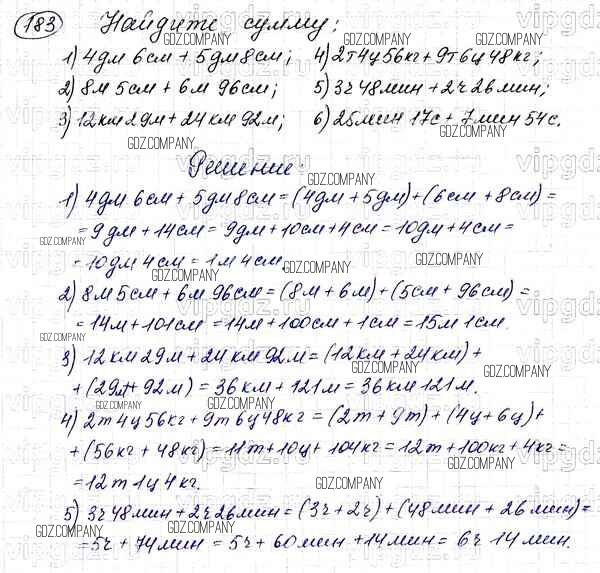 183 Найдите сумму:
1) 4дм 6см + 5дм 8см; 4) 2т 4ц 56кг + 9т 6ц 48кг;
2) 8м 5см + 6м 96см; 5) 3ч 48мин + 2ч 26мин;
3) 12км 29м + 24км 92м; 6) 25мин 17с + 7мин 54с.
Решение:
1) 4дм 6см + 5дм 8см = (4дм + 5дм) + (6см + 8см) =
= 9дм + 14см = 9дм + 10см + 4см = 10дм + 4см =
= 10дм 4см = 1м 4см.
2) 8м 5см + 6м 96см = (8м + 6м) + (5см + 96см) =
= 14м + 101см = 14м + 100см + 1см = 15м 1см.
3) 12км 29м + 24км 92м = (12км + 24км) +
+ (29м + 92м) = 36км + 121м = 36км 121м.
4) 2т 4ц 56кг + 9т 6ц 48кг = (2т + 9т) + (4ц + 6ц) +
+ (56кг + 48кг) = 11т + 10ц + 104кг = 12т + 100кг + 4кг =
= 12т 1ц 4кг.
5) 3ч 48мин + 2ч 26мин = (3ч + 2ч) + (48мин + 26мин) =
= 5ч + 74мин = 5ч + 60мин + 14мин = 6ч 14мин.